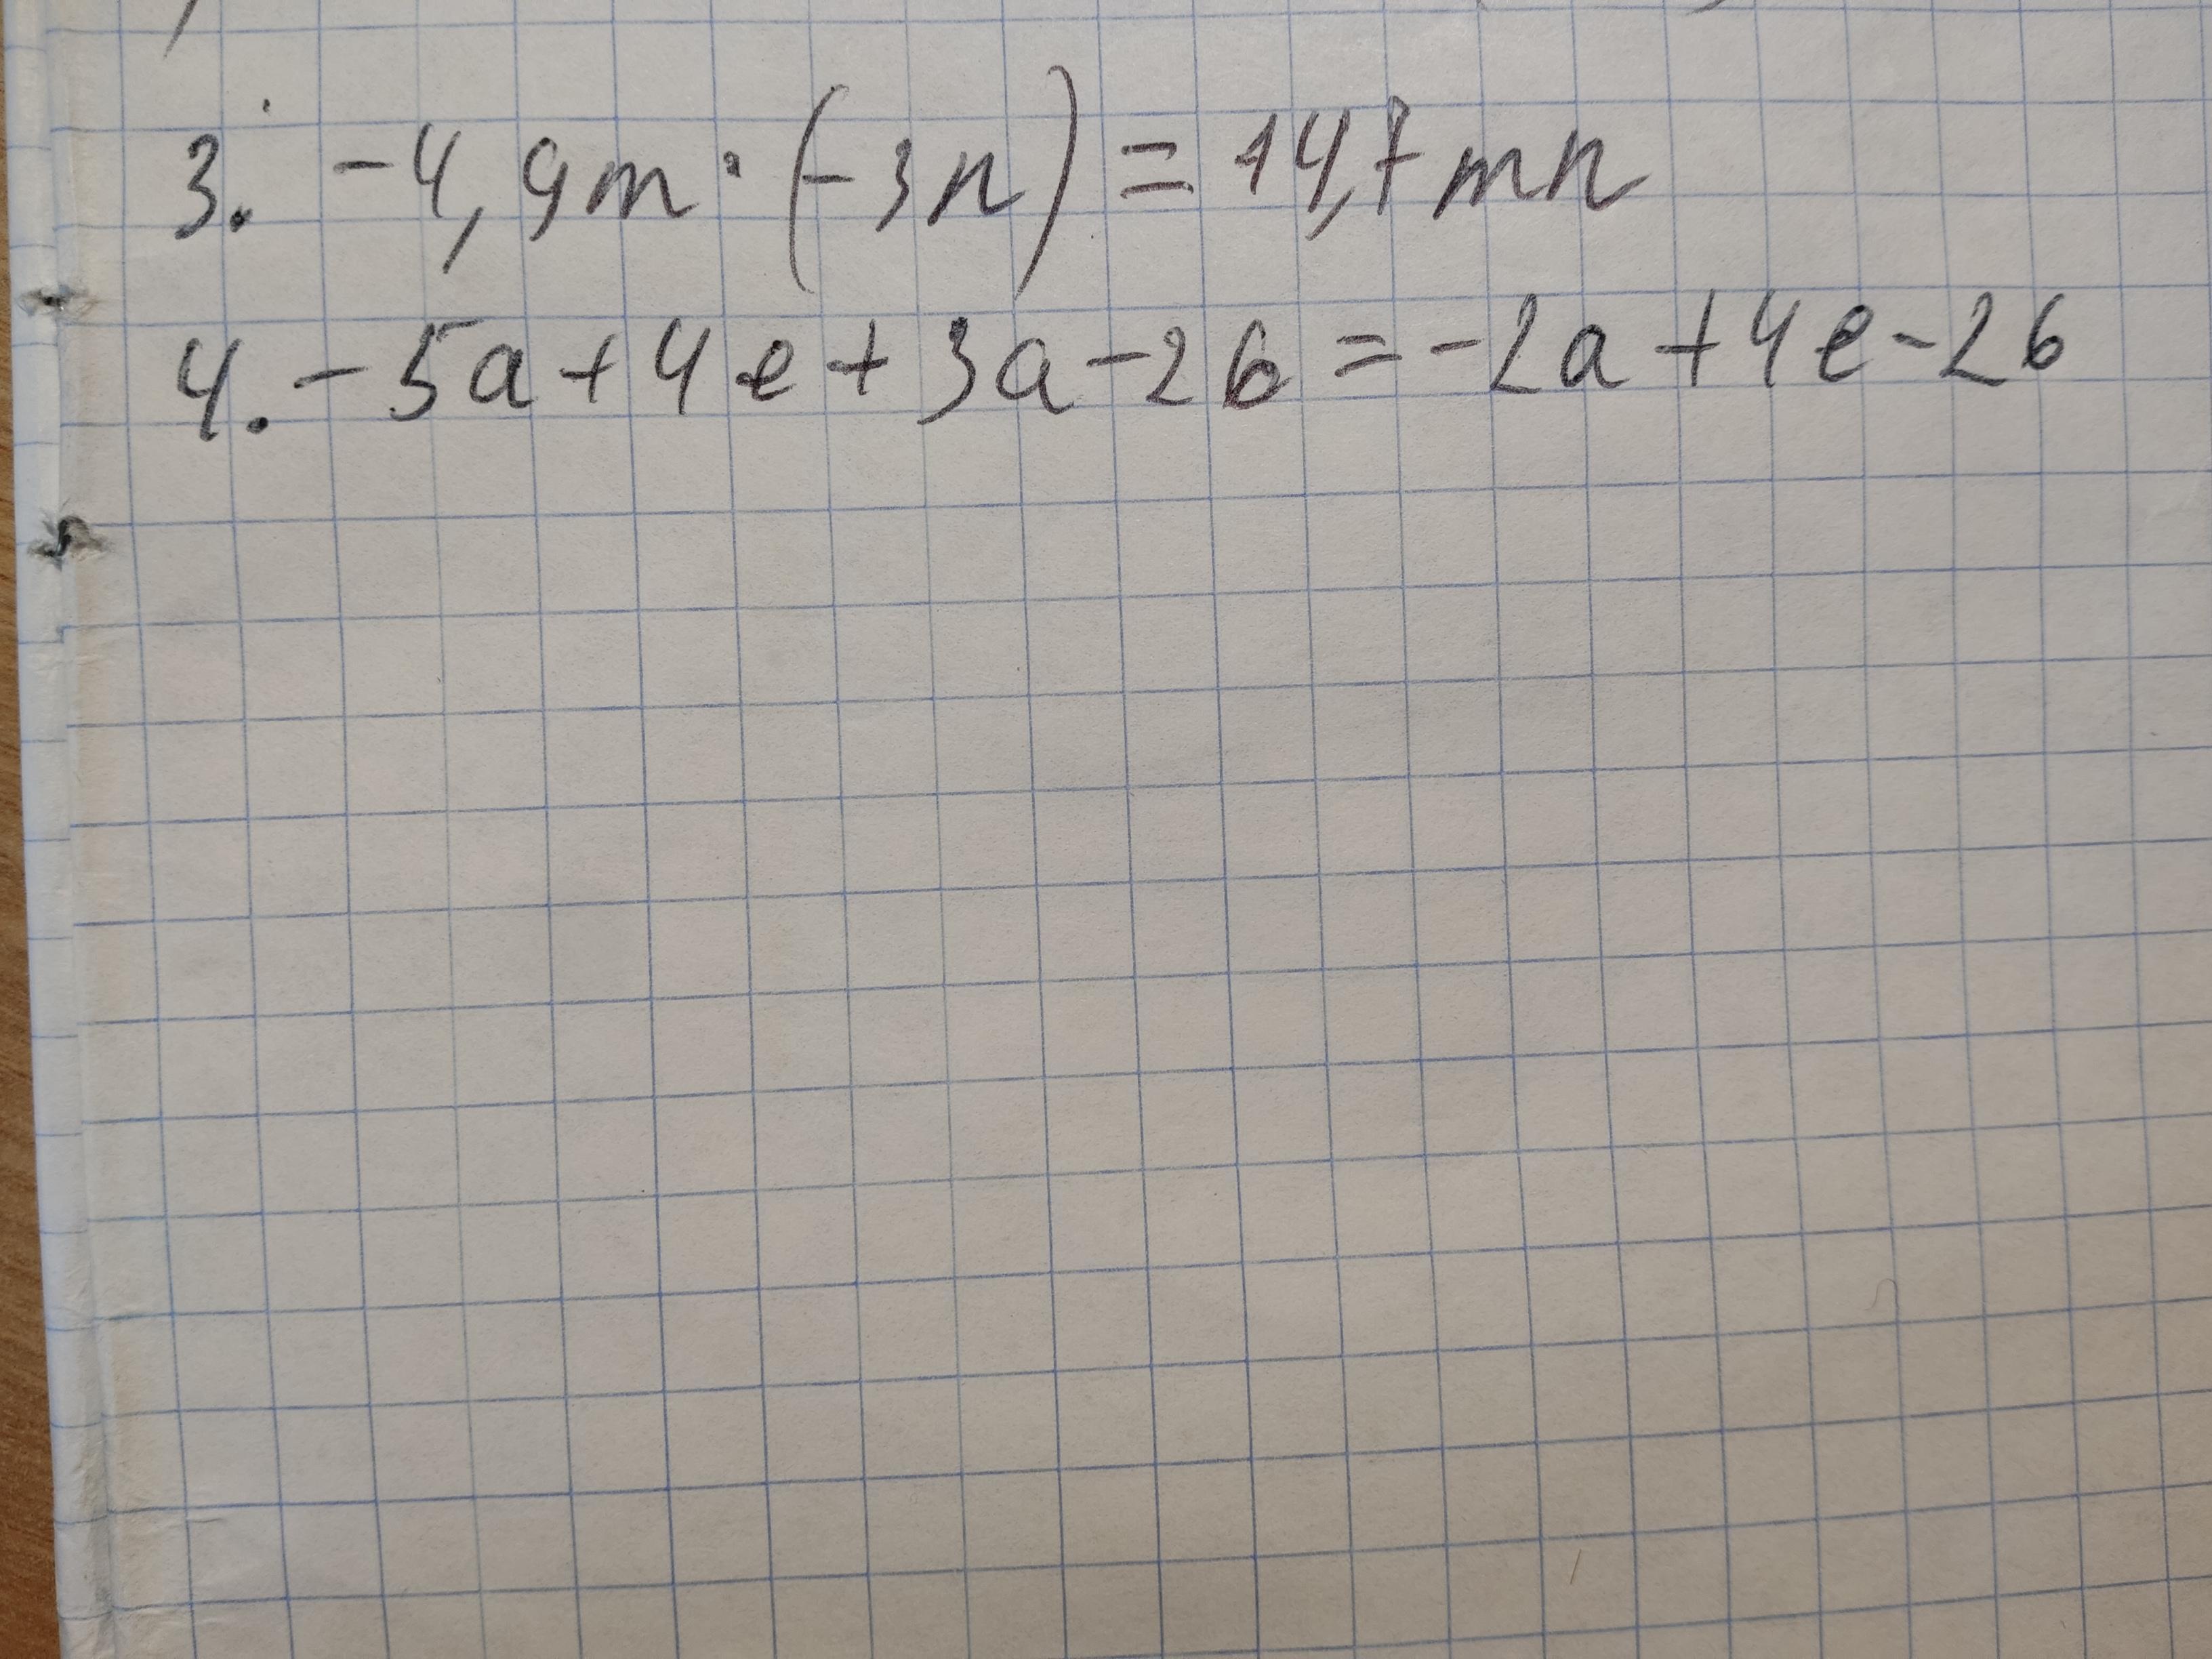 3. -4,9m · (-3n) = 14,7mn
4. -5a+4e+3a-2b = -2a+4e-2b